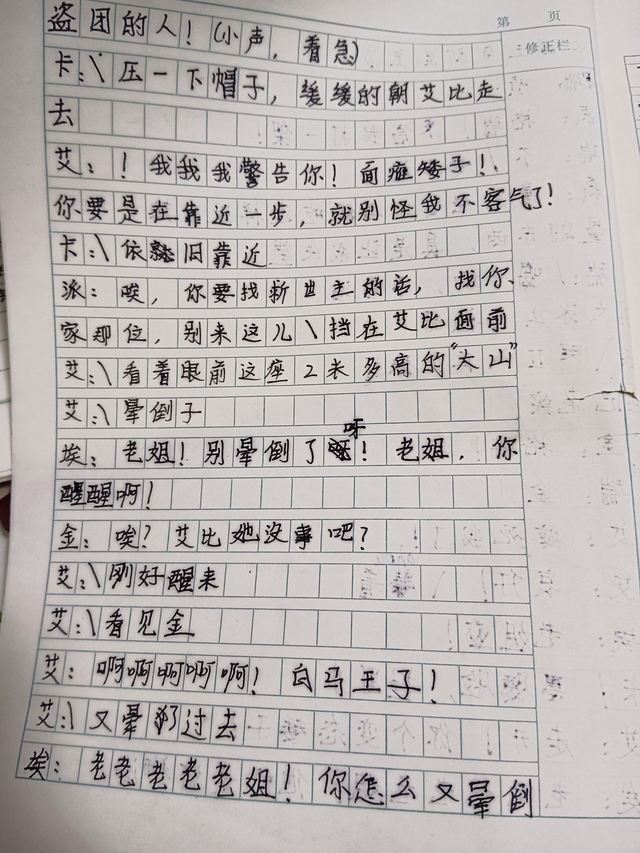 第 页
三修正栏
盗团的人！(小声，着急)
卡：\压一下帽子，缓缓的朝艾比走
去
艾：！我我我警告你！面瘫矮子！
你要是在靠近一步，就别怪我不客气了！
卡：\依旧靠近
派：唉，你要找新世主的话，找你
家那位，别来这儿\挡在艾比面前
艾：\看着眼前这座2米多高的“大山”
艾：\晕倒子
埃：老姐！别晕倒了呀！老姐，你
醒醒啊！
金：唉？艾比她没事吧？
艾：\刚好醒来
艾：\看见金
艾：啊啊啊啊啊！白马王子！
艾：\又晕过去
埃：老老老老老姐！你怎么又晕倒